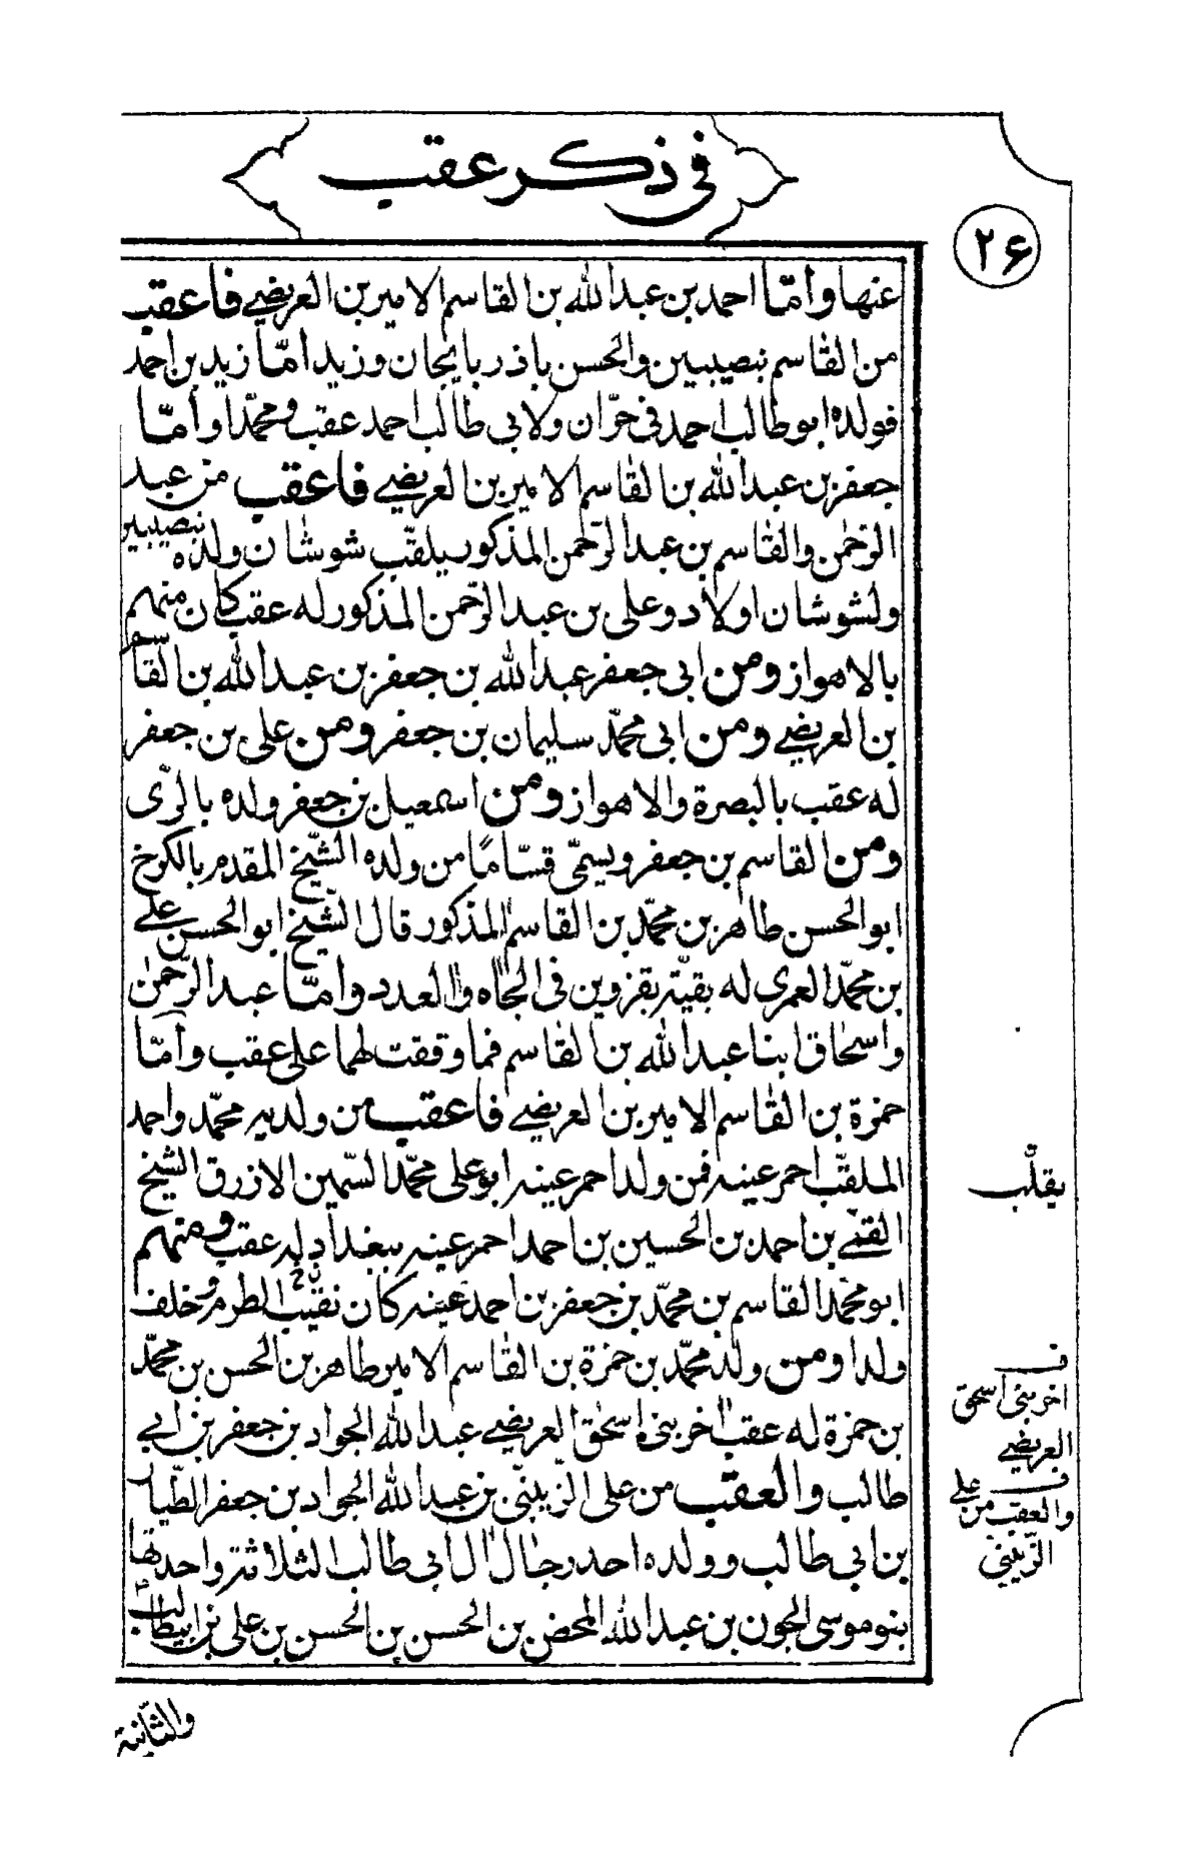 فى ذكر عقب
٢۶
عنها وأمّا احمد بن عبد الله بن القاسم الامير بن العريضى فاعقب
من القاسم بنصيبين والحسن باذربايجان وزيد امّا زيد بن احمد
فولده ابو طالب احمد فى حرّان ولابى طالب احمد عقب ومحمّدا وأمّا
جعفر بن عبد الله بن القاسم الامير بن العريضى فاعقب من عبد
الرّحمن والقاسم بن عبد الرّحمن المذكور يلقّب شوشان ولده بنصيبين
ولشوشان اولاد وعلى بن عبد الرّحمن المذكور له عقب كان منهم
بالاهواز ومن ابى جعفر عبد الله بن جعفر بن عبد الله بن القاسم
بن العريضى ومن ابى محمّد سليمان بن جعفر ومن على بن جعفر
له عقب بالبصرة والاهواز ومن اسمعيل بن جعفر ولده بالرّى
ومن القاسم بن جعفر ويسمّى قسّامًا من ولده الشّيخ المقدم بالكرخ
ابو الحسن طاهر بن محمّد بن القاسم المذكور قال الشّيخ ابو الحسن على
بن محمّد العمرى له بقيّة بقزوين فى الجاه والعدد وامّا عبد الرّحمن
واسحاق ابنا عبد الله بن القاسم فما وقفت لهما على عقب وأمّا
حمزة بن القاسم الامير بن العريضى فاعقب من ولديه محمّد واحمد
الملقّب احمر عينه فمن ولد احمر عينه ابو على محمّد السّمين الازرق الشيخ
القنّى بن احمد بن الحسين بن احمد احمر عينه ببغداد له عقب ومنهم
ابو محمّد القاسم بن محمّد بن جعفر بن احمد عينه كان نقيب الطرم وخلف
ولدا ومن ولد محمّد بن حمزة بن القاسم الامير طاهر بن الحسن بن محمّد
بن حمزة له عقب اخر بنى اسحق العريضى عبد الله الجواد بن جعفر بن ابى
طالب والعقب من على الزّينبى بن عبد الله الجواد بن جعفر الطّيار
بن ابى طالب وولده احد رجال ال ابى طالب الثلاثة واحدتها
بنو موسى الجون بن عبد الله المحض بن الحسن بن الحسن بن على بن ابيطالب
يقلّب
ف
اخر بنى اسحق
العريضى
ف
والعقب من على
الزّينبى
والثّانية